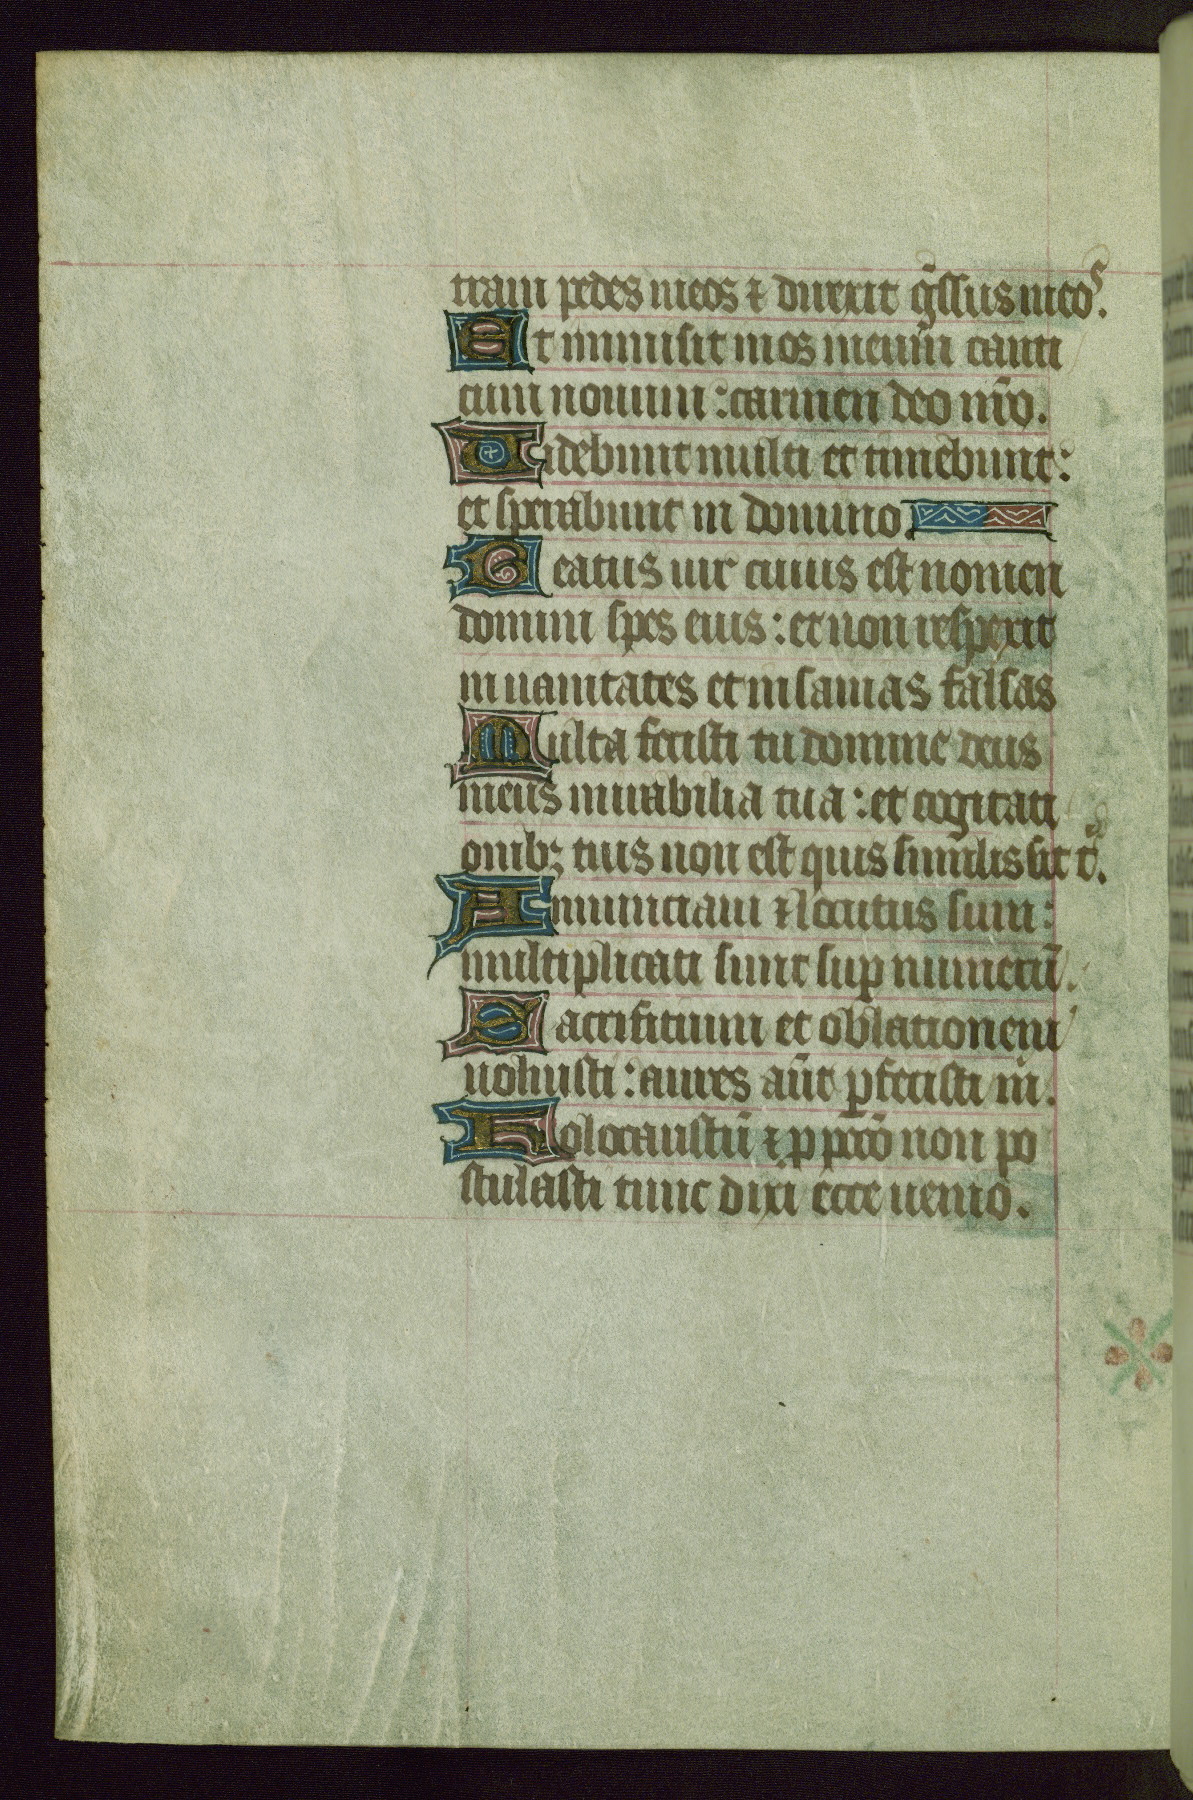 tram pedes meos ⁊ direxit g̃ssus meoˢ.
Et immisit in os meum canti
cum nouum : carmen deo nr̃o.
Uidebunt multi et timebunt :
et sperabunt in domino.
Beatus uir cuius est nomen
domini spes eius : et non respexit
in uanitates et insanias falsas
Multa fecisti tu domine deus
meus mirabilia tua : et cogitati
onibꝫ tuis non est quis similis sit t̃.
Annunciaui ⁊ locutus sum :
multiplicati sunt sup numerū.
Sacrificium et oblationem
noluisti : aures aũt ꝑfecisti m̃.
Holocaustū ⁊ p pcc̃o non po
stulasti tunc dixi ecce uenio.